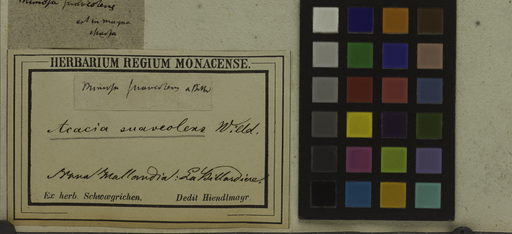 Mimosa suaveolens
HERBARIUM REGIUM MONACENSE.
Mimosa suaveolens
Acacia suaveolens Willd.
Nova Hollandia: La Billardiere.
Ex herb. Schwægrichen. Dedit Hiendlmayr